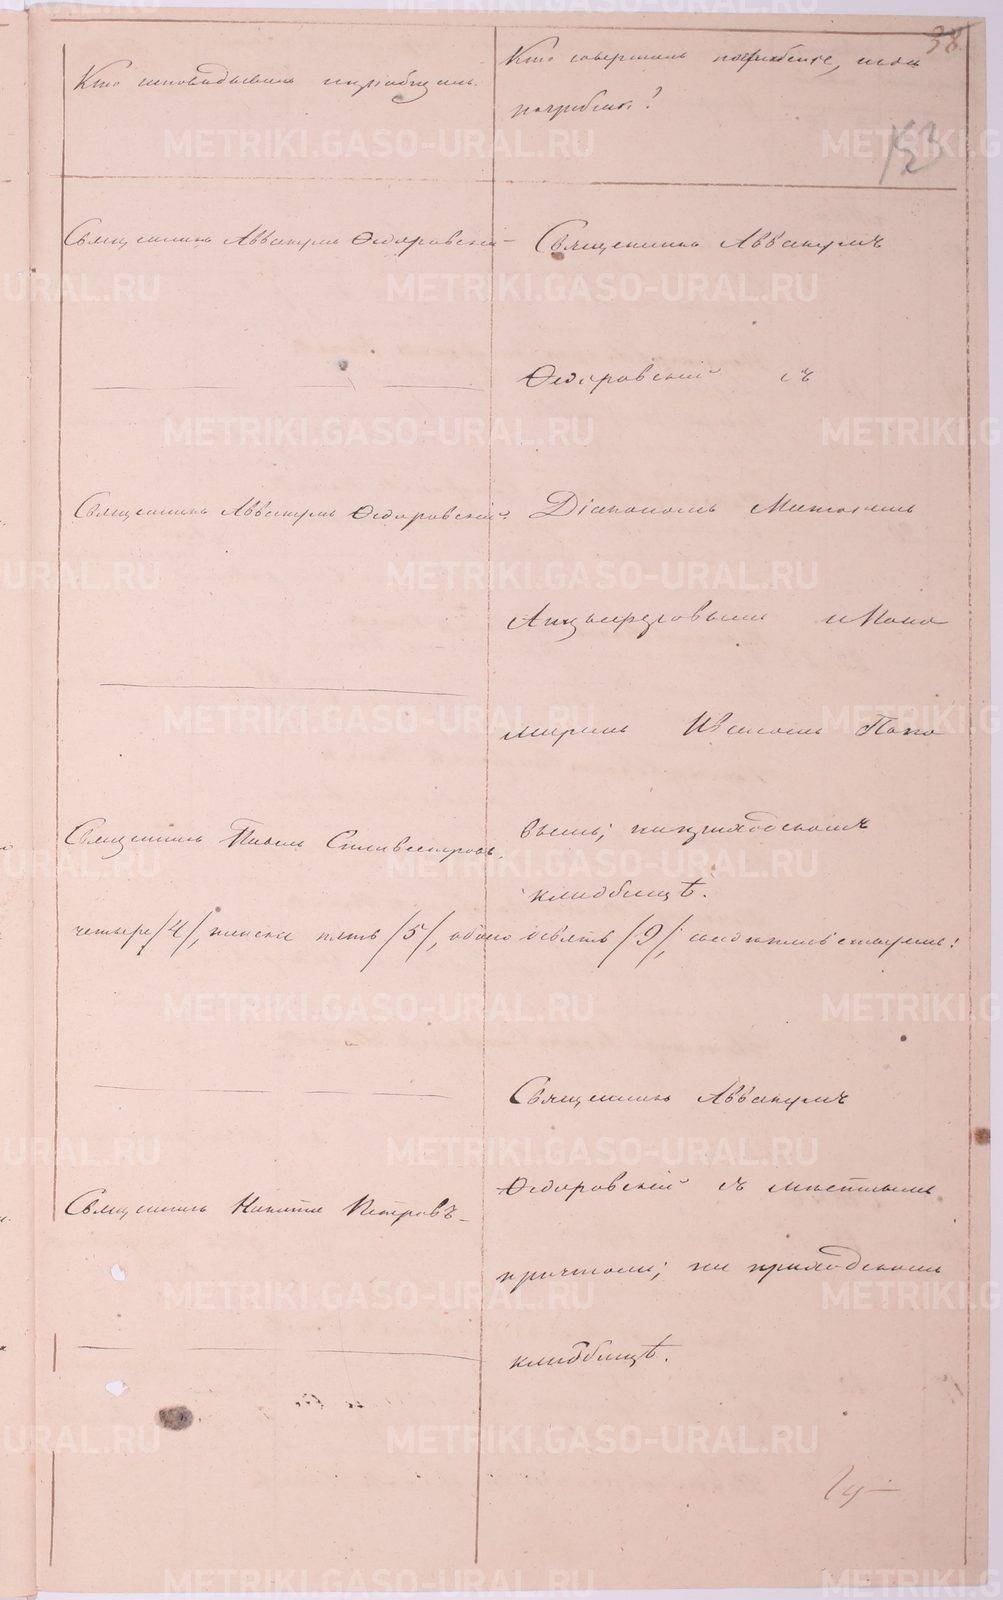 38
Кто исповѣдывалъ и пріобщалъ.
Кто совершалъ погребеніе, и гдѣ
погребенъ?
153
Священникъ Аввакумъ Ѳедоровскій
Священникъ Аввакумъ
Ѳедоровскій съ
Священникъ Аввакумъ Ѳедоровскій.
Діакономъ
и Поно
маремъ Иваномъ Попо
вымъ; на приходскомъ
Священникъ Павелъ Сильвестровъ.
кладбищѣ.
четыре /4/, женска пять /5/, обоего девять /9/,
Священникъ Аввакумъ
Ѳедоровскій съ мѣстнымъ
Священникъ Никита Петровъ
причтомъ; на приходскомъ
кладбищѣ.
METRIKI.GASO-URAL.RU